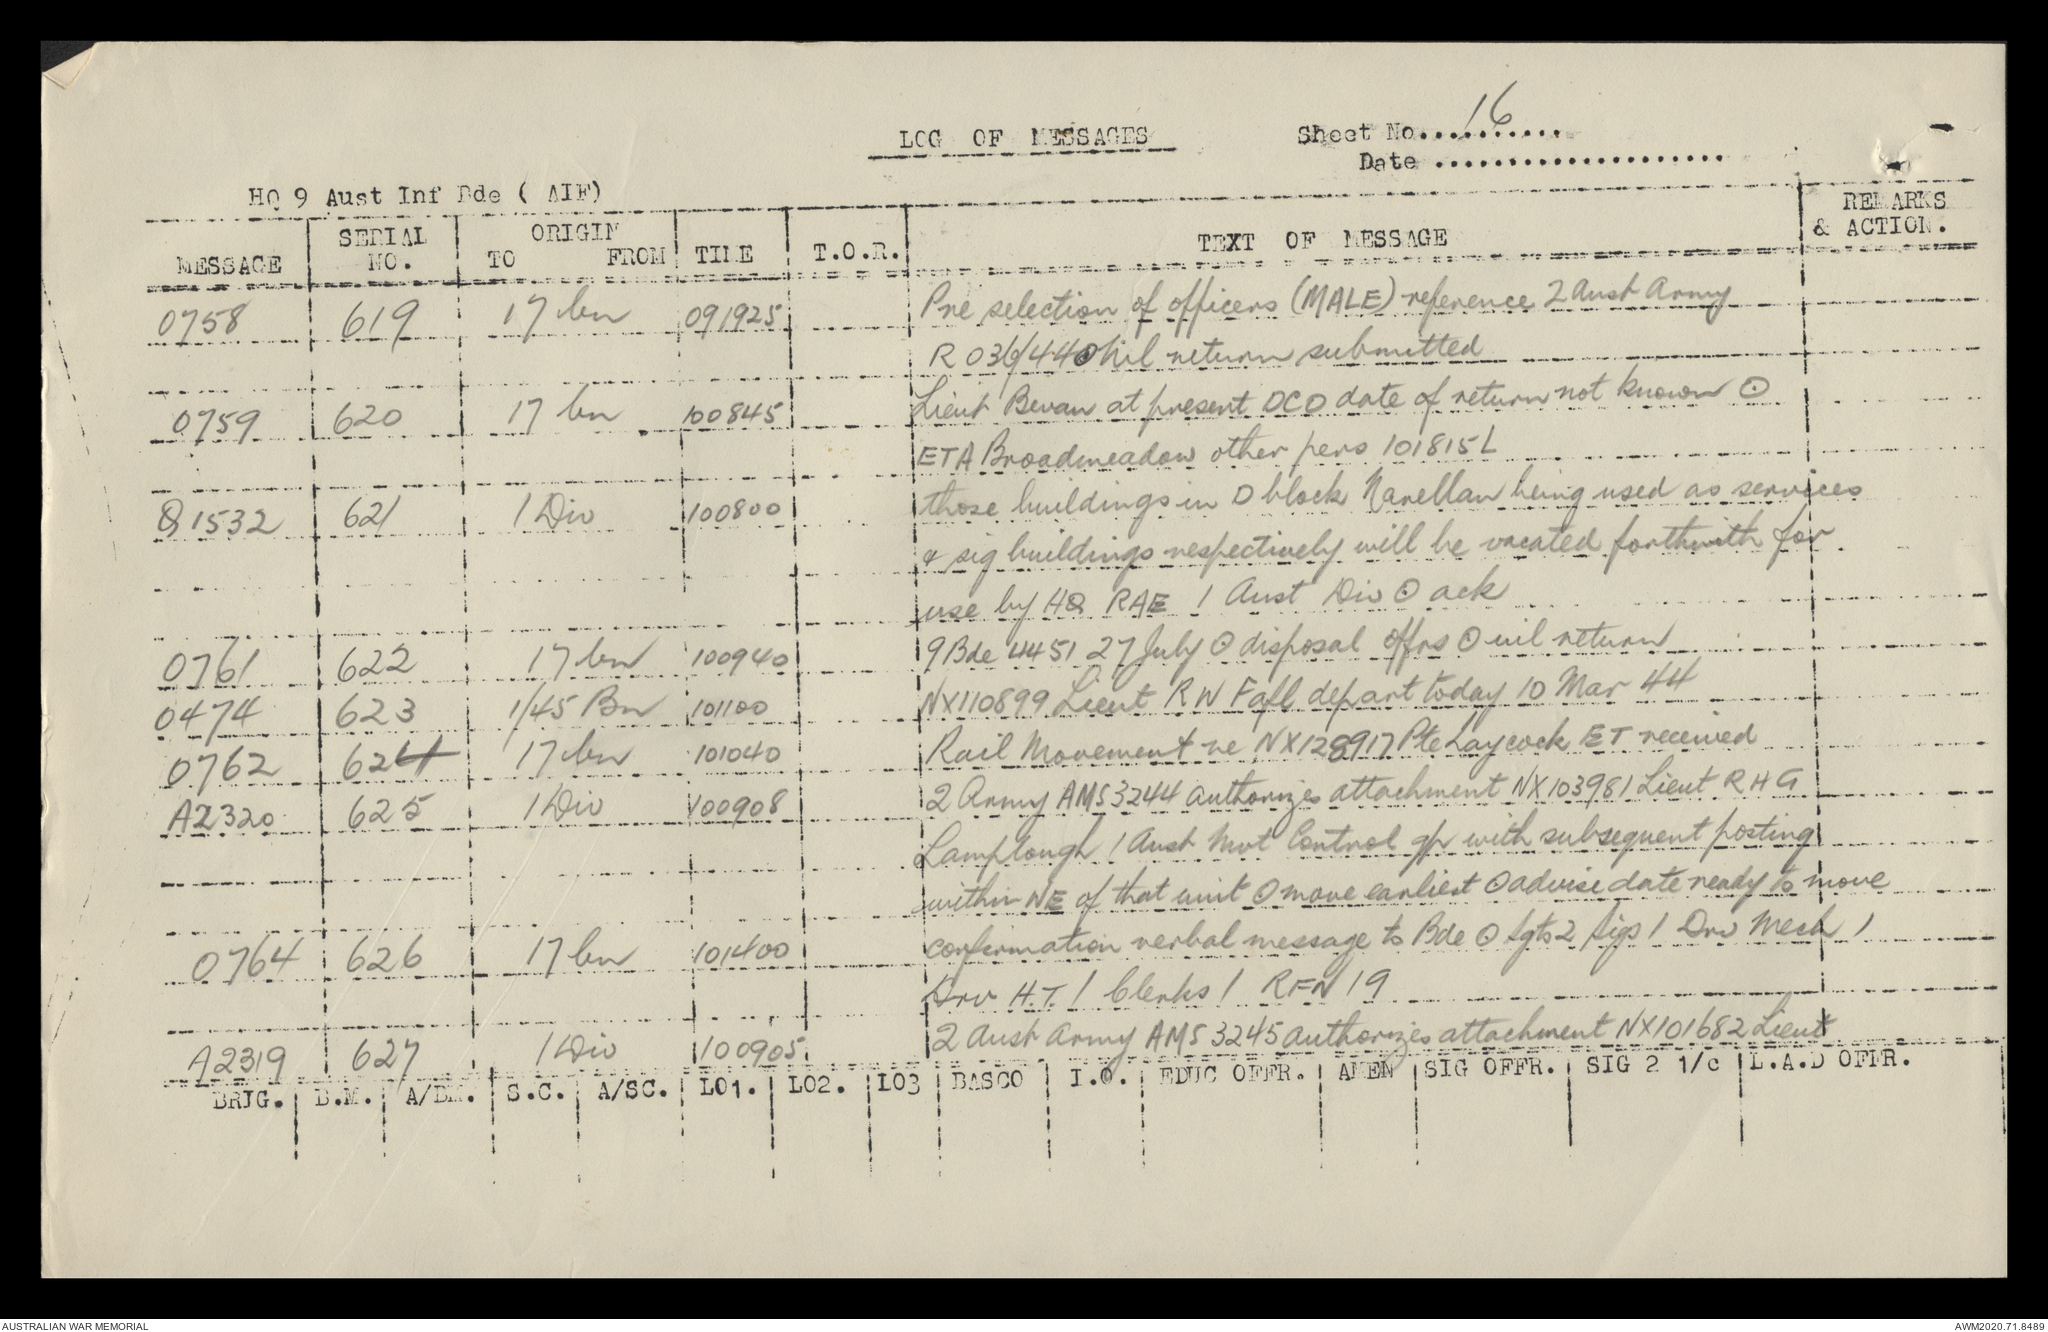 LOG OF MESSAGES
Sheet No..16........
Date ....................
HQ 9 Aust Inf Bde ( AIF)
MESSAGE SERIAL NO. ORIGIN TO FROM TIME T.O.R. TEXT OF MESSAGE REMARKS & ACTION.
0758 619 17 bn 091925 Pre selection of officers (MALE) reference 2 Aust Army
R 036/44 ⊙ Nil return submitted
0759 620 17 bn 100845 Lieut Bevan at present DCO date of return not known ⊙
ETA Broadmeadow other pers 101815L
Q1532 621 1 Div 100800 those buildings in D block Narellan being used as services
& sig buildings respectively will be vacated forthwith for
use by HQ RAE 1 Aust Div ⊙ ack
0761 622 17 bn 100940 9 Bde 4451 27 July ⊙ disposal offrs ⊙ nil return
0474 623 1/45 Bn 101100 NX110899 Lieut RW Fall depart today 10 Mar 44
0762 624 17 bn 101040 Rail Movement re NX128917 Pte Laycock ET received
A2320 625 1 Div 100908 2 Army AMS 3244 authorizes attachment NX103981 Lieut R H G
Lamplough 1 Aust Mvt Control gp with subsequent posting
within WE of that unit ⊙ move earliest ⊙ advise date ready to move
0764 626 17 bn 101400 confirmation verbal message to Bde ⊙ Sgts 2 Sigs 1 Drv Mech 1
Drv H.T. 1 Clerks 1 RFN 19
A2319 627 1 Div 100905 2 Aust Army AMS 3245 authorizes attachment NX101682 Lieut
BRIG. B.M. A/BM. S.C. A/SC. LO1. LO2. LO3 BASCO I.O. EDUC OFFR. AMEN SIG OFFR. SIG 2 1/c L.A.D OFFR.
AUSTRALIAN WAR MEMORIAL
AWM2020.71.8489